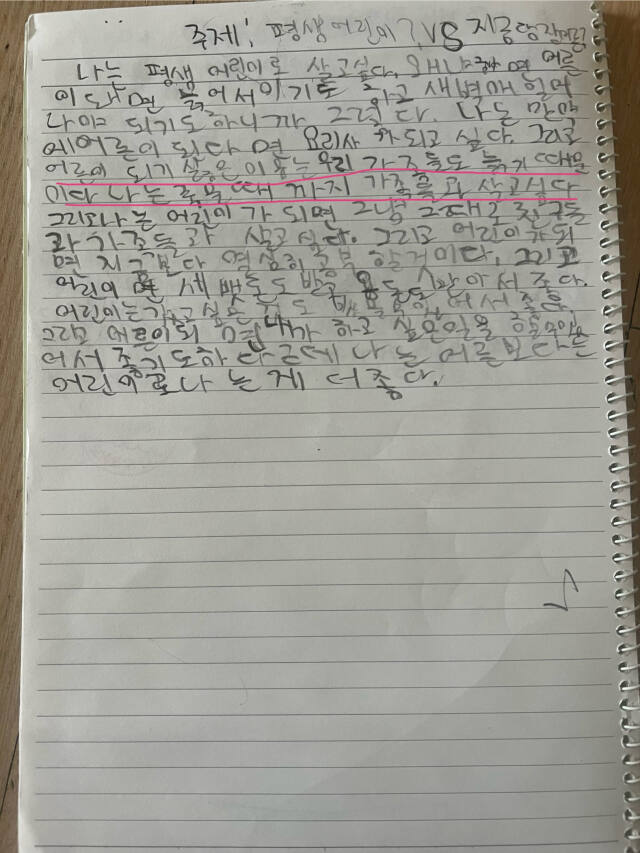 주제: 평생 어린이? VS 지금 당장 어른?
나는 평생 어린이로 살고싶다. 왜냐하면 어른
이 돼면 늙어서이기도 하고 새벽에 일어
나야 되기도 하니까 그렇다. 나는 만약
에어른이 된다면 요리사가 되고 싶다. 그리고
어른이 되기 싫은 이유는 우리 가족들도 늙기 때문
이다 나는 죽을때 까지 가족들과 살고싶다
그리고나는 어린이가 되면 그냥 그대로 친구들
과 가족들과 살고 싶다. 그리고 어린이가 되
면 지금보다 열심히 공부 할거이다. 그리고
어린이면 세뱃돈도 받고 용돈도 받아서 좋다.
어린이는 가고 싶은 것도 있어서 좋다.
그리고 어린이 내가 하고 싶은일을 할수있
어서 좋기도하다 근데 나는 어른보다는
어린이로 나는게 더좋다.